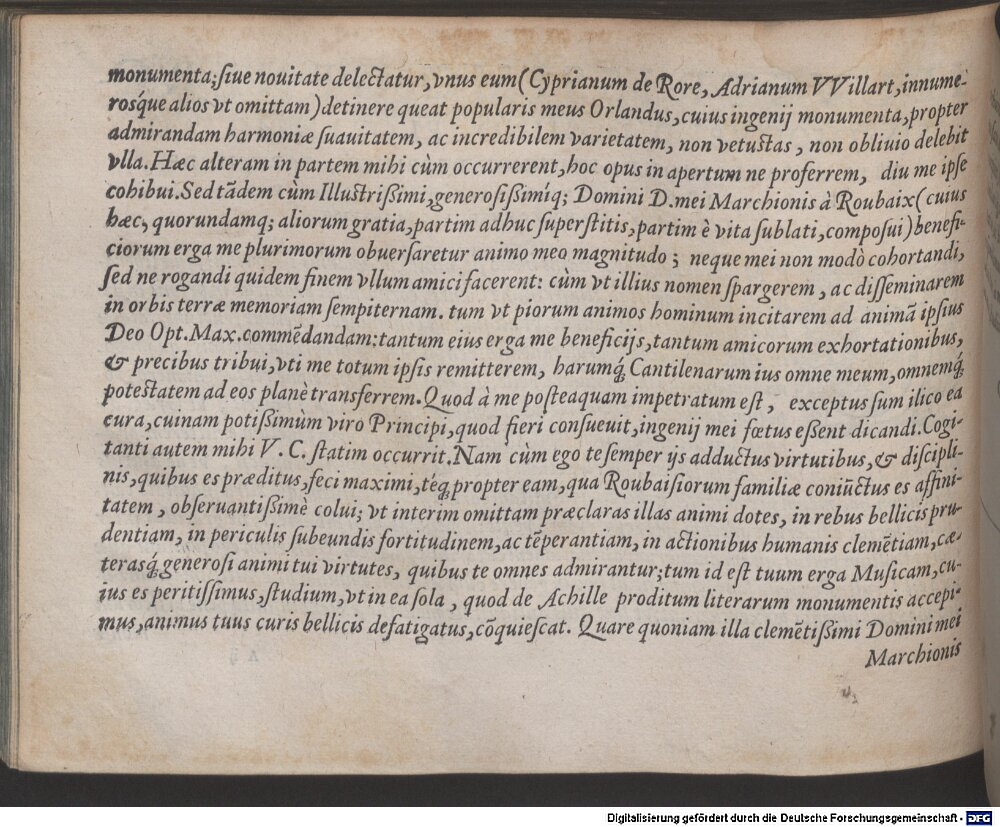 monumenta; siue nouitate delectatur, vnus eum (Cyprianum de Rore, Adrianum VVillart, innume-
rosq́ue alios vt omittam) detinere queat popularis meus Orlandus, cuius ingenij monumenta, propter
admirandam harmoniæ suauitatem, ac incredibilem varietatem, non vetustas, non obliuio delebit
vlla. Hæc alteram in partem mihi cùm occurrerent, hoc opus in apertum ne proferrem, diu me ipse
cohibui. Sed tãdem cùm Illustrißimi, generosißimíq; Domini D. mei Marchionis à Roubaix (cuius
hæc, quorundamq; aliorum gratia, partim adhuc superstitis, partim è vita sublati, composui) benefi-
ciorum erga me plurimorum obuersaretur animo meo magnitudo; neque mei non modò cohortandi,
sed ne rogandi quidem finem vllum amici facerent: cùm vt illius nomen spargerem, ac disseminarem
in orbis terræ memoriam sempiternam. tum vt piorum animos hominum incitarem ad animã ipsius
Deo Opt. Max. commẽdandam: tantum eius erga me beneficijs, tantum amicorum exhortationibus,
& precibus tribui, vti me totum ipsis remitterem, harumq́; Cantilenarum ius omne meum, omnemq́;
potestatem ad eos planè transferrem. Quod à me posteaquam impetratum est, exceptus sum ilico ea
cura, cuinam potißimùm viro Principi, quod fieri consueuit, ingenij mei fœtus eßent dicandi. Cogi-
tanti autem mihi V. C. statim occurrit. Nam cùm ego te semper ijs adductus virtutibus, & discipli-
nis, quibus es præditus, feci maximi, téq; propter eam, qua Roubaisiorum familiæ coniũctus es affini-
tatem, obseruantißimè colui; vt interim omittam præclaras illas animi dotes, in rebus bellicis pru-
dentiam, in periculis subeundis fortitudinem, ac tẽperantiam, in actionibus humanis clemẽtiam, cæ-
terasq́; generosi animi tui virtutes, quibus te omnes admirantur; tum id est tuum erga Musicam, cu-
ius es peritißimus, studium, vt in ea sola, quod de Achille proditum literarum monumentis accepi-
mus, animus tuus curis bellicis defatigatus, cõquiescat. Quare quoniam illa clemẽtißimi Domini mei
Marchionis
Digitalisierung gefördert durch die Deutsche Forschungsgemeinschaft - DFG